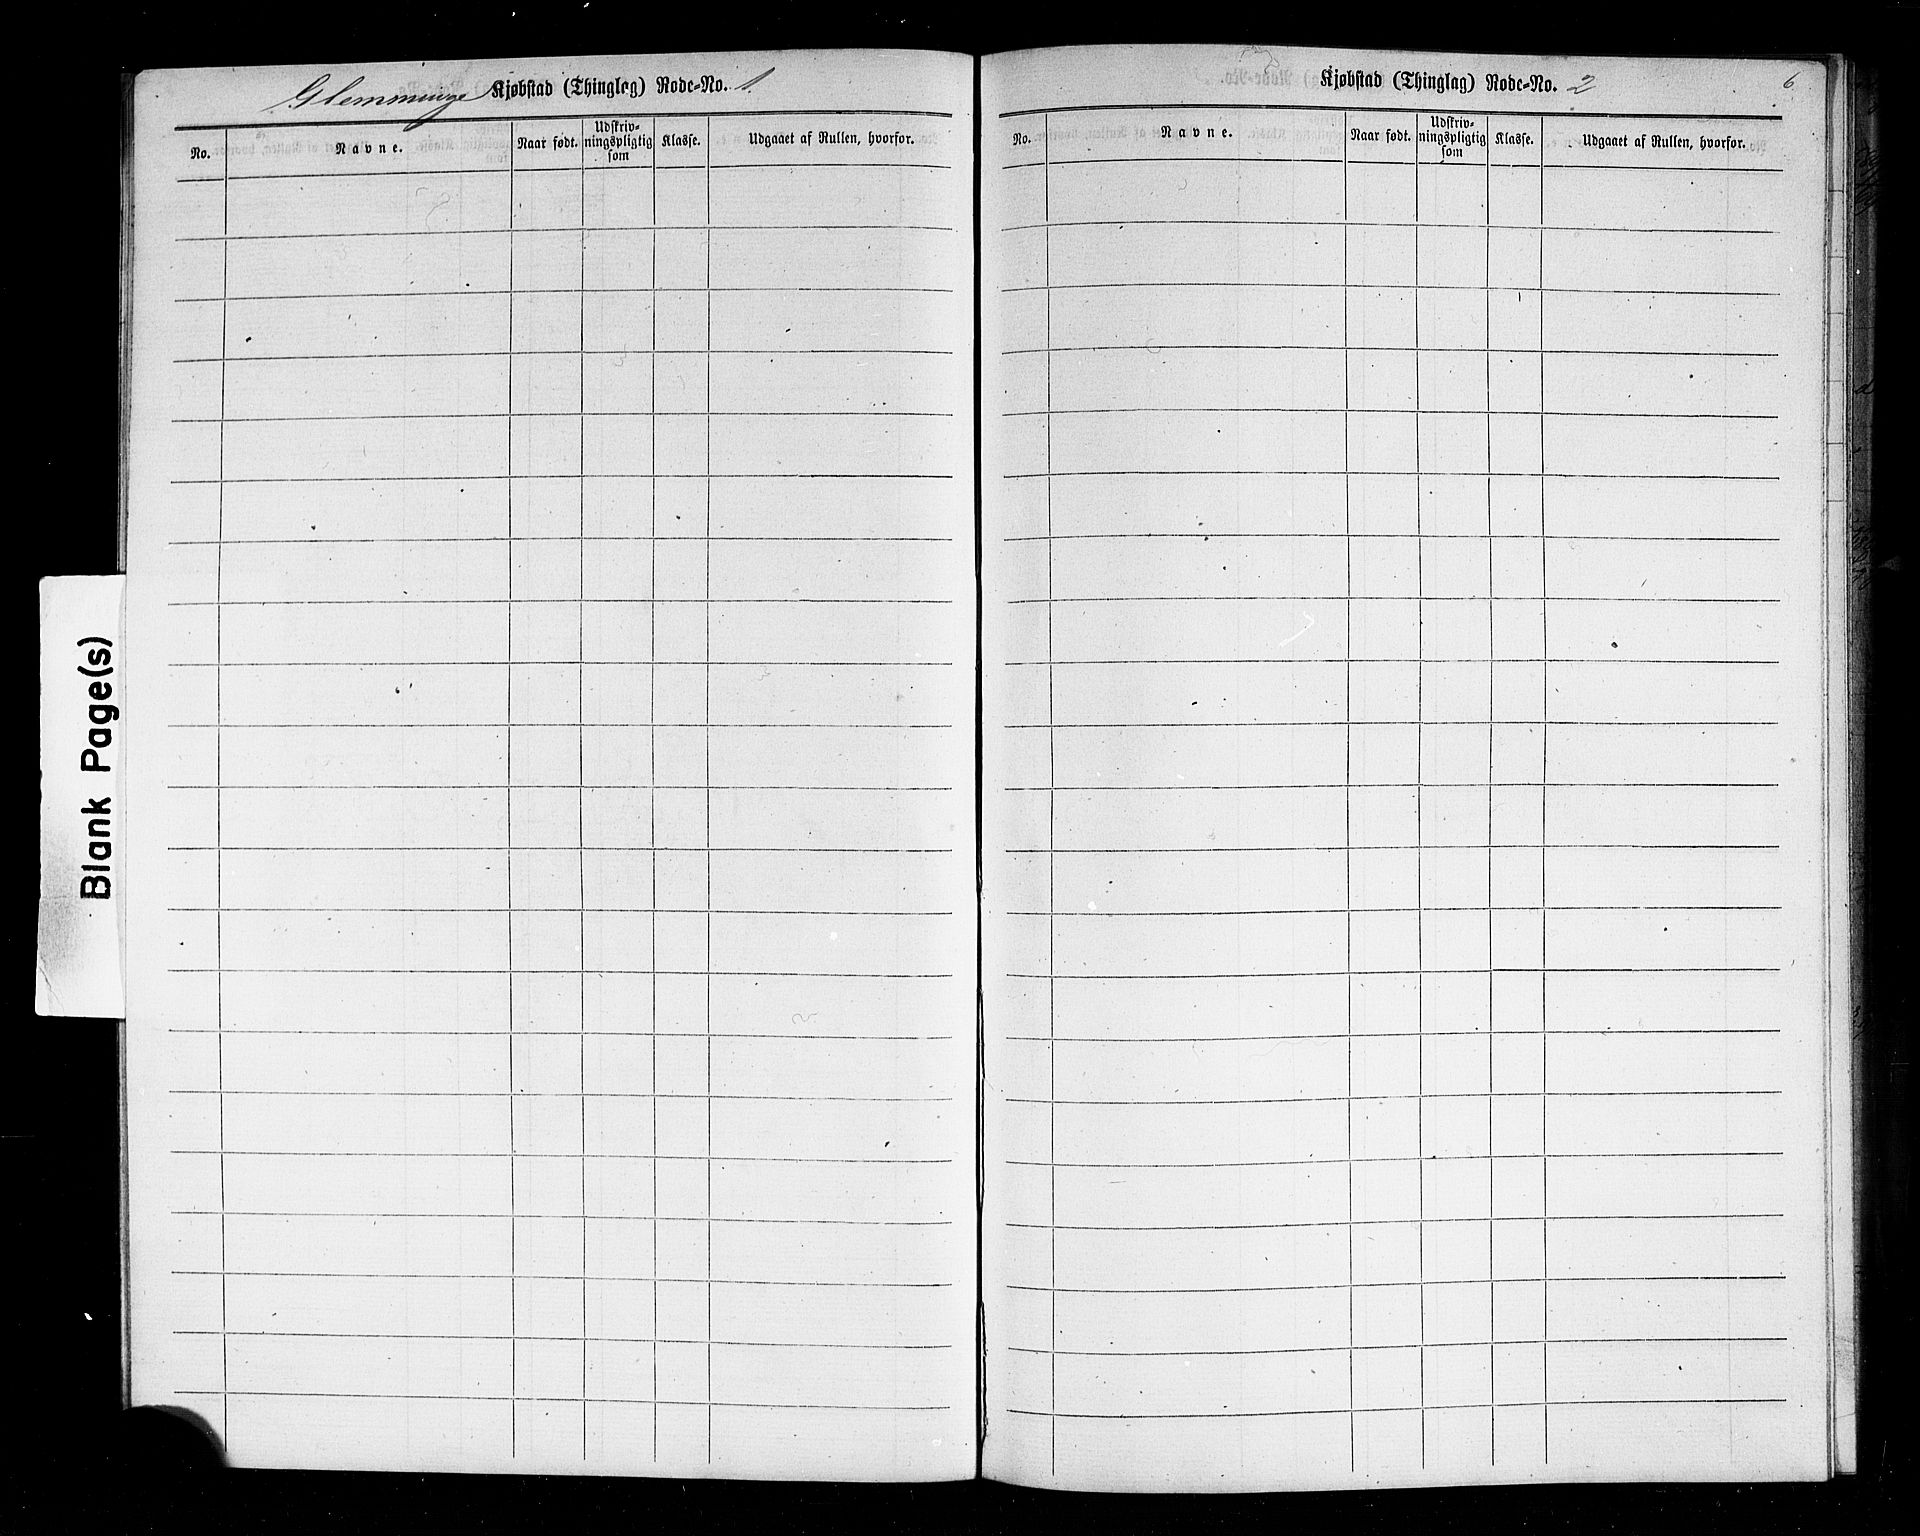 Glemminge Kjøbstad (Thinglag) Rode-No. 1.
No. Navne. Naar født. Udskriv-ningspligtig som Klasse. Udgaaet af Rullen, hvorfor.
Kjøbstad (Thinglag) Rode-No. 2
6
No. Navne. Naar født. Udskriv-ningspligtig som Klasse. Udgaaet af Rullen, hvorfor.
Blank Page(s)